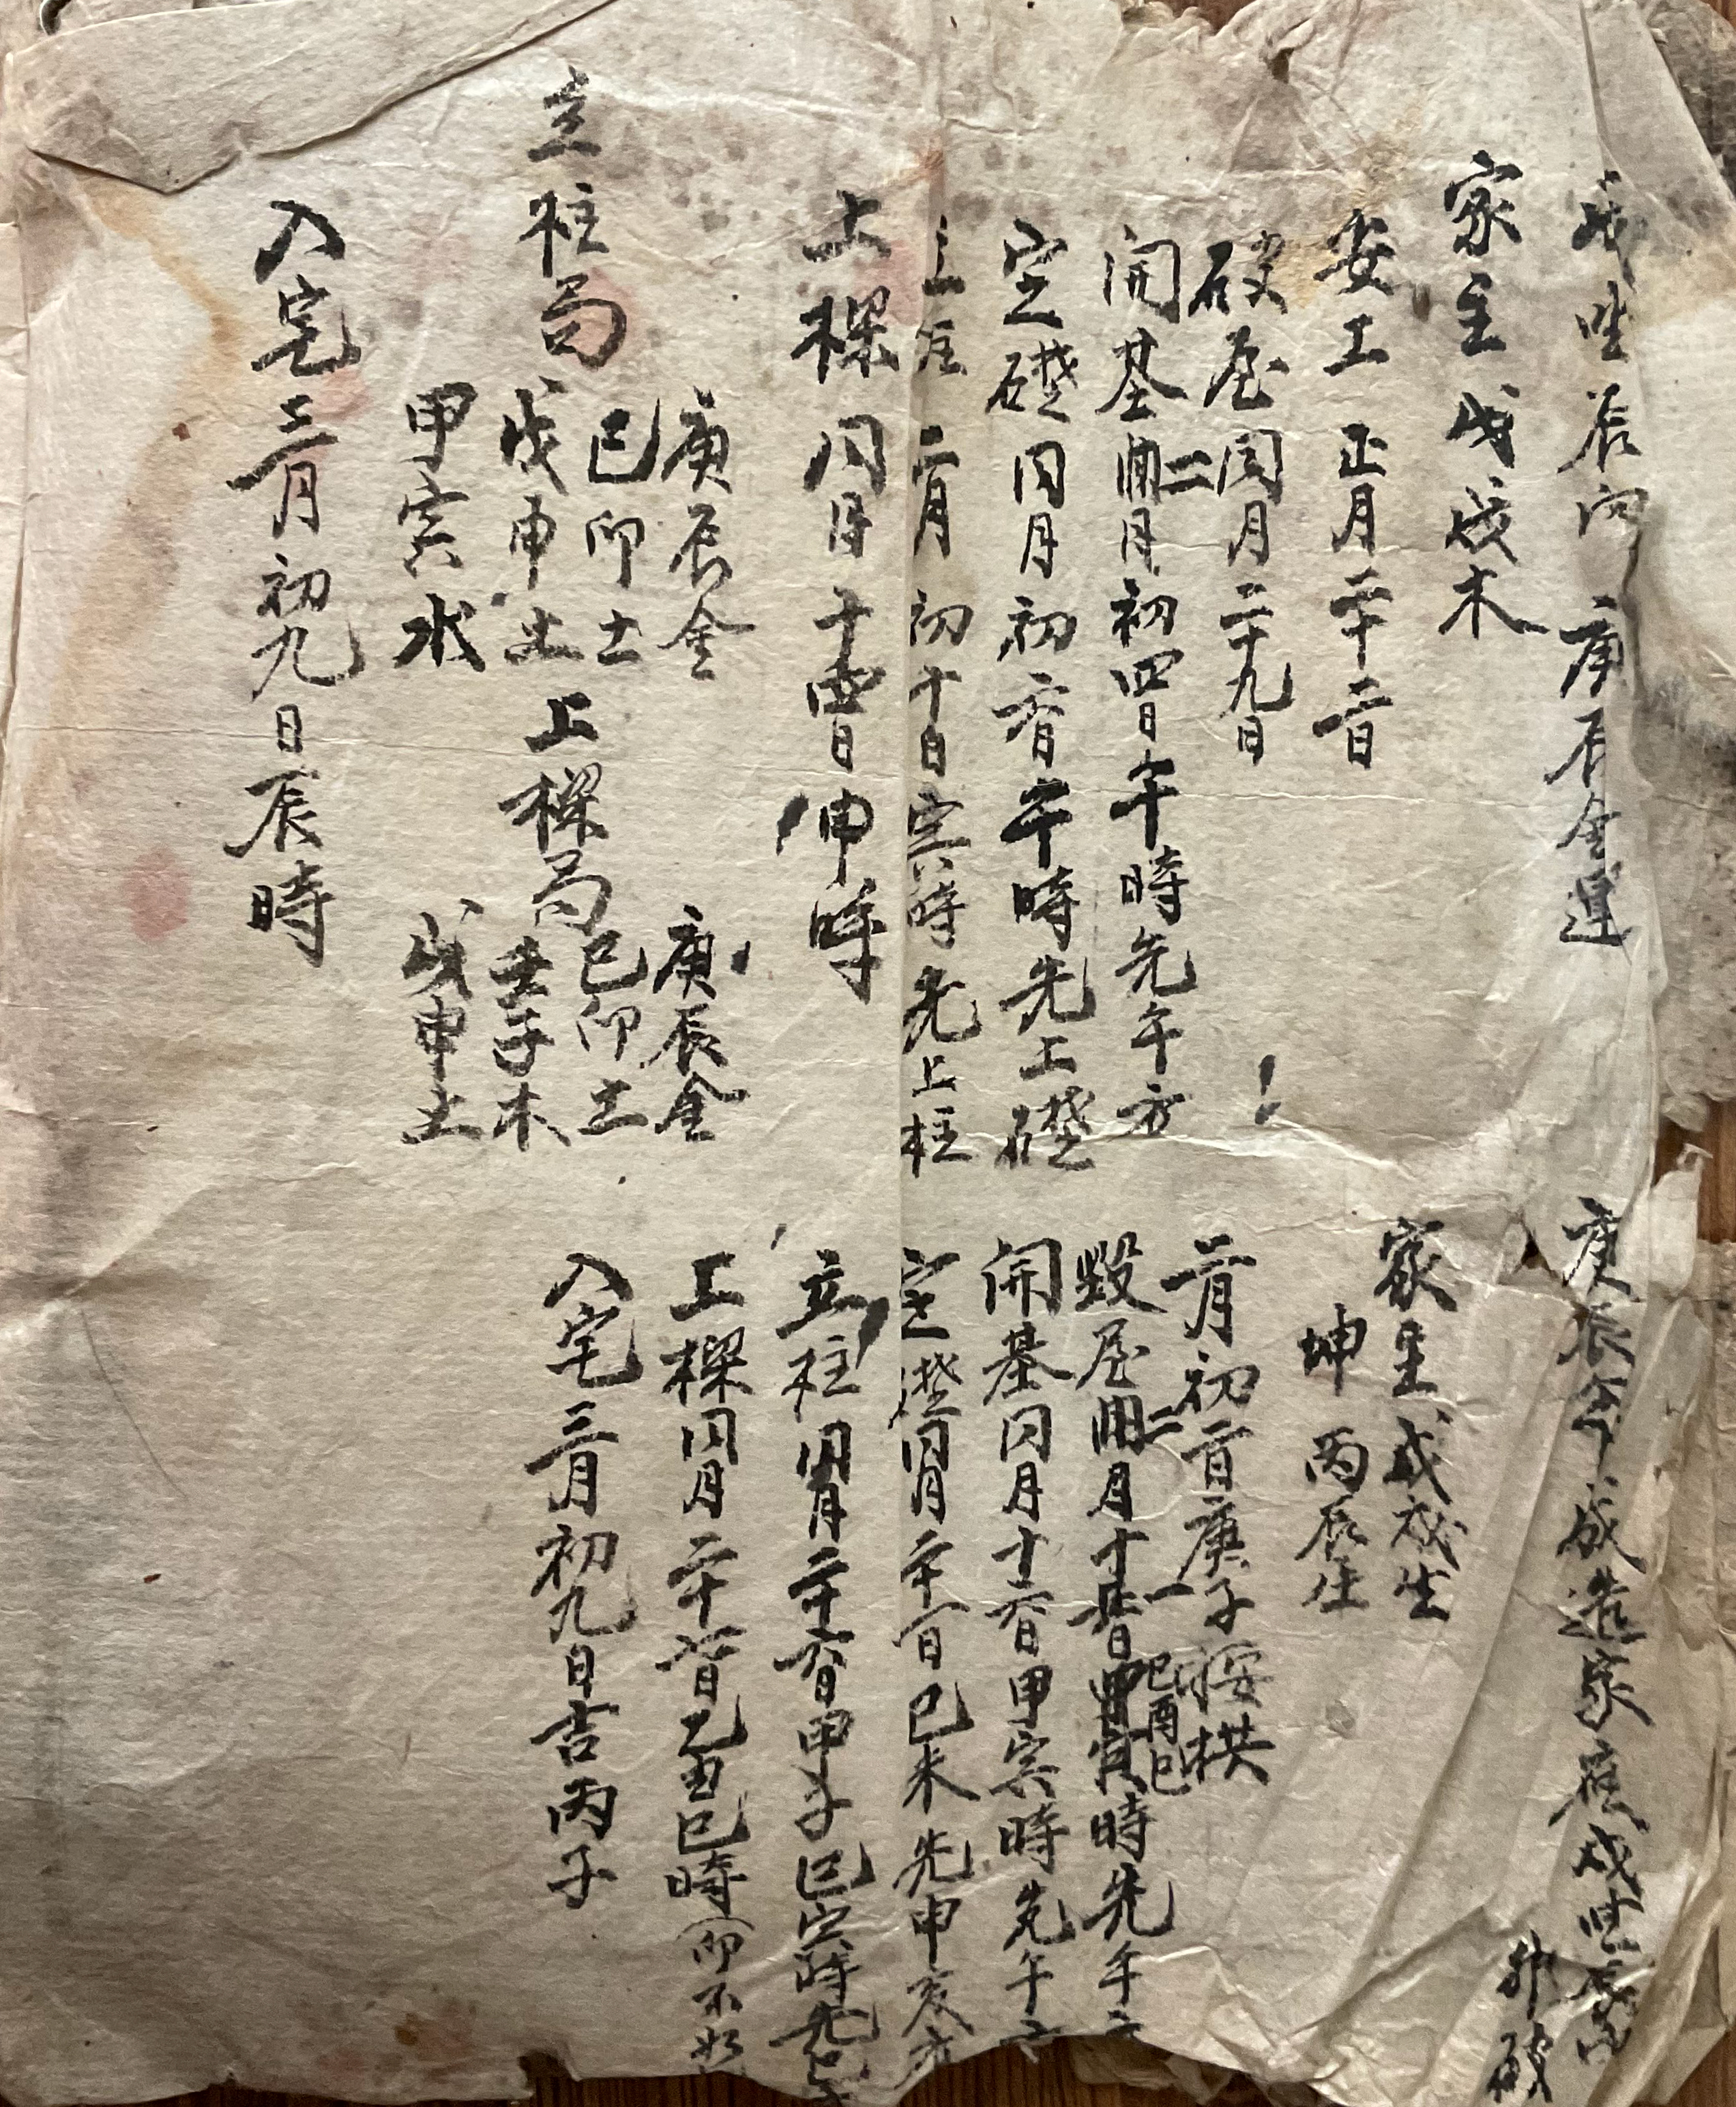 戌坐辰向 庚辰金運
家主 戊戌木
安工 正月二十二日
破屋 閏月二十九日
開基 二月初四日午時先午方
定礎 同月初六日午時先上礎
立柱 二月初十日寅時先上柱
上樑 同月十四日申時
立柱局
庚辰金
己卯土
戊申土
甲寅水
上樑局
庚辰金
己卯土
壬子木
戊申土
入宅 三月初九日辰時
庚辰年 成造家座戌坐辰向
家主 戊戌生
坤 丙辰生
二月初二日庚子
毀屋 二月十 日 時先午
己酉巳
開基同月十六日甲寅時先午方
定礎同月二十一日己未先申亥方
立柱同月二十六日甲子 寅時先
上樑同月二十 日乙丑巳時(卯不好
入宅三月初九日吉丙子